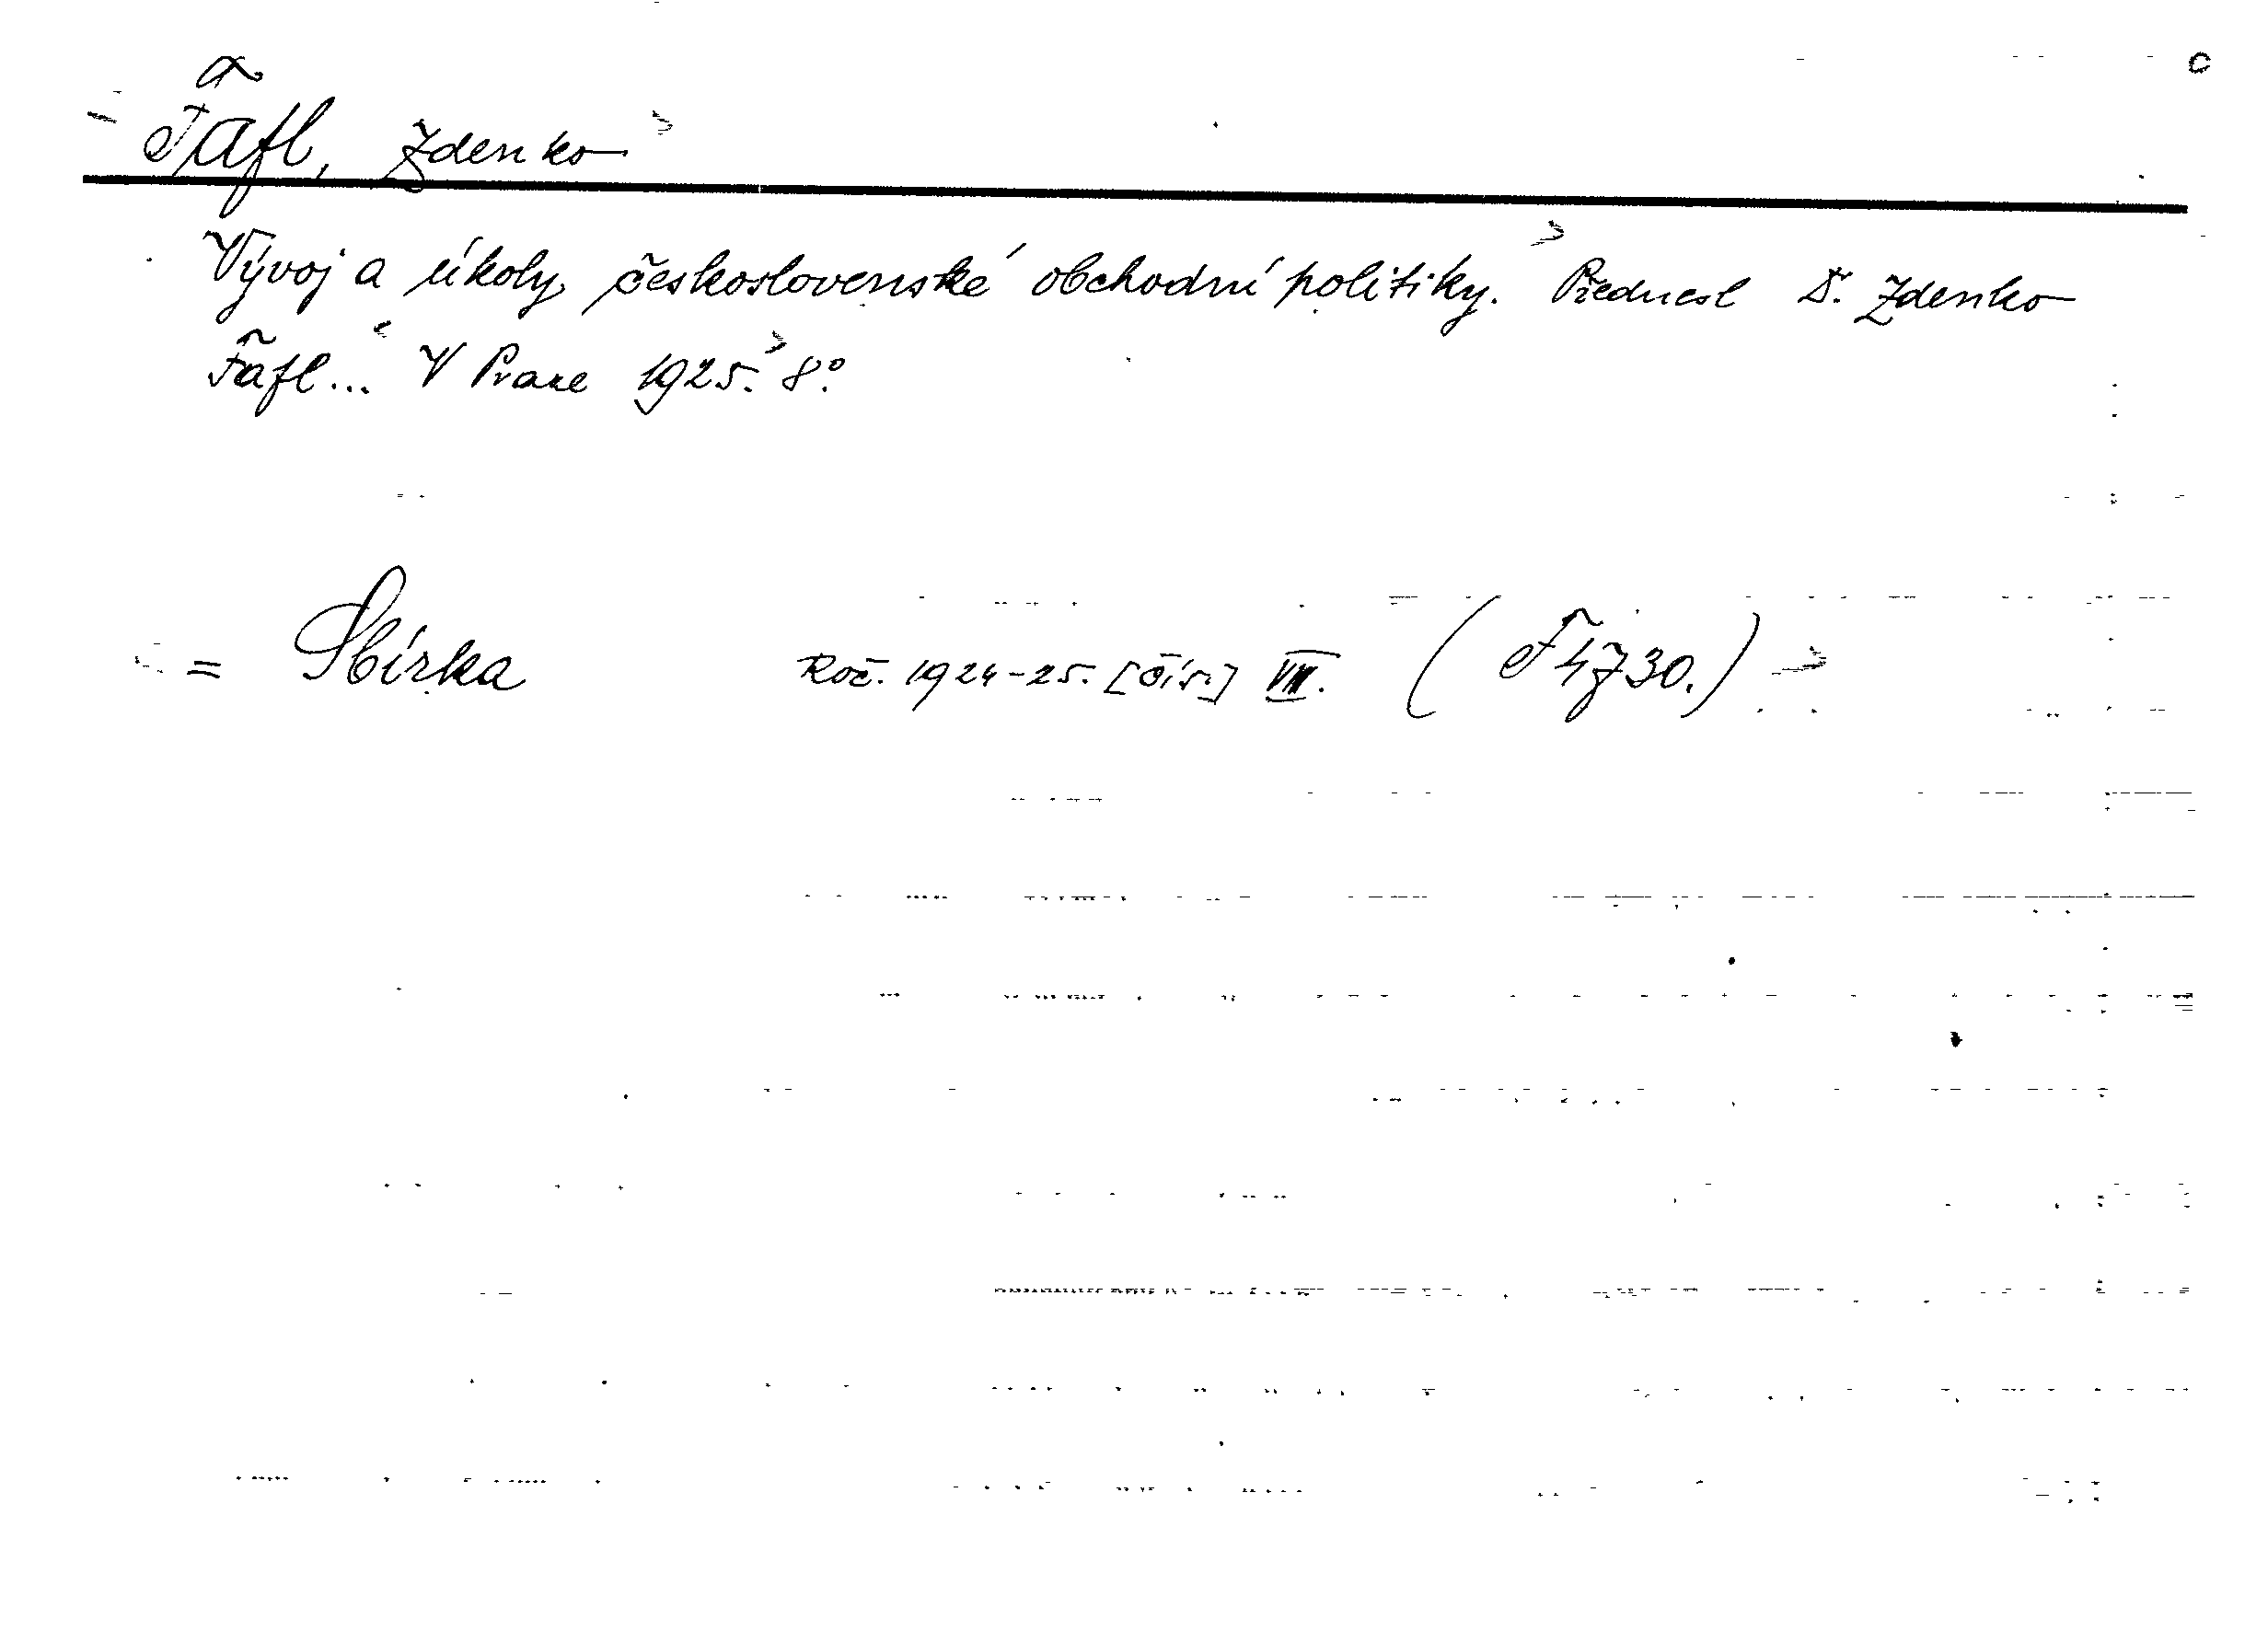 Fafl, Zdenko
Vývoj a úkoly československé obchodní politiky. Přednesl Dr. Zdenko
Fafl... V Praze 1925. 8°.
= Sbírka Roč. 1924-25. [čís.] VIII. (F 4730.)